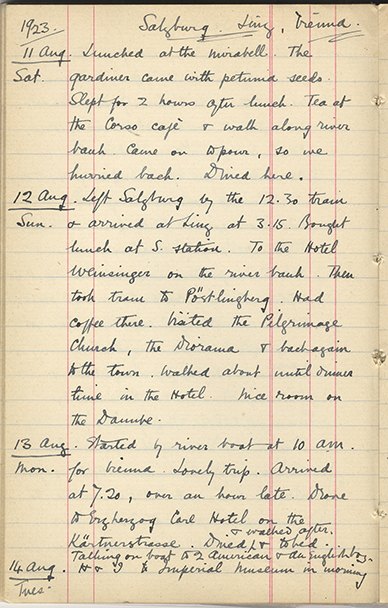 1923. Salzburg. Linz, Vienna.
11 Aug. Lunched at the Mirabell. The
Sat. gardiner came with petunia seeds.
Slept for 2 hours after lunch. Tea at
the Corso café & walk along river
bank. Came on to pour, so we
hurried back. Dined here.
12 Aug. Left Salzburg by the 12.30 train
Sun. & arrived at Linz at 3.15. Bought
lunch at S. station. To the Hotel
Weinsinger on the river bank. Then
took tram to Pöstlingberg. Had
coffee there. Visited the Pilgrimage
Church, the Diorama & back again
to the town. Walked about until dinner
time in the Hotel. Nice room on
the Danube.
13 Aug. Started by river boat at 10 am.
Mon. for Vienna. Lovely trip. Arrived
at 7.20, over an hour late. Drove
to Erzherzog Carl Hotel on the
Kärtnerstrasse. Dined, & to bed. & walked after.
Talking on boat to 2 American & an English boy.
14 Aug. H & I to Imperial Museum in morning
Tues.